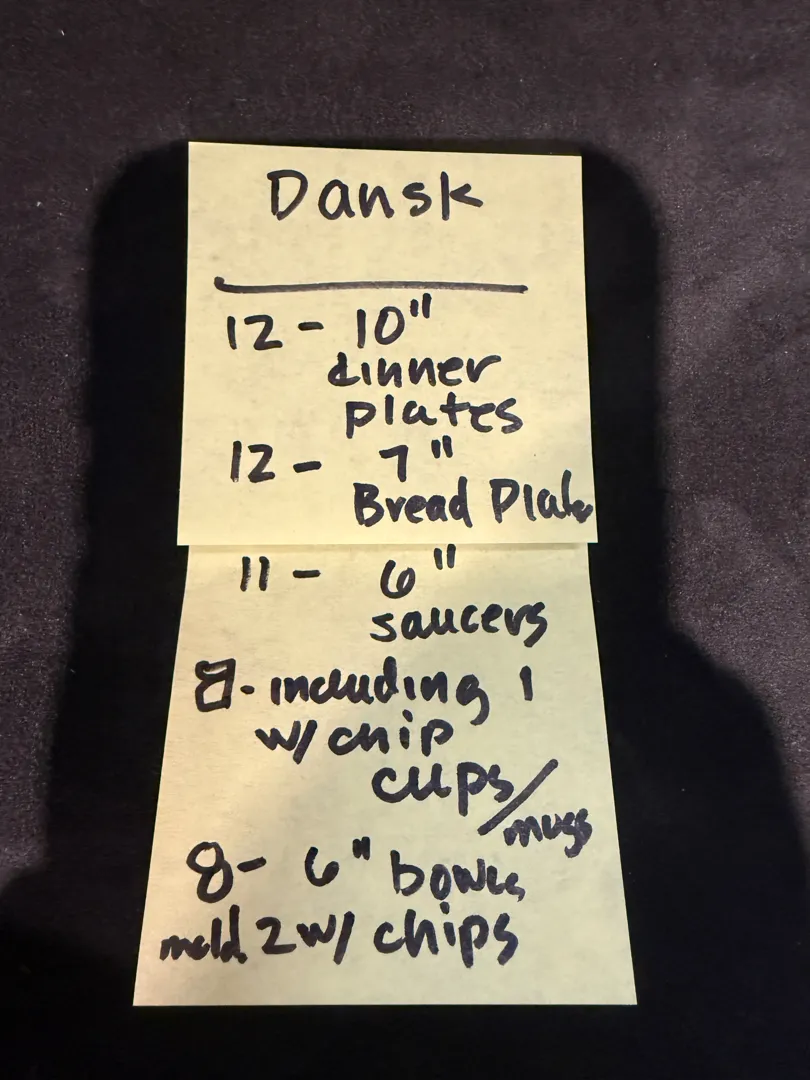 Dansk
12 - 10"
dinner
plates
12 - 7"
Bread Plate
11 - 6"
saucers
8 - including 1
w/ chip
cups/
mugs
8 - 6" bowls
2 w/ chips